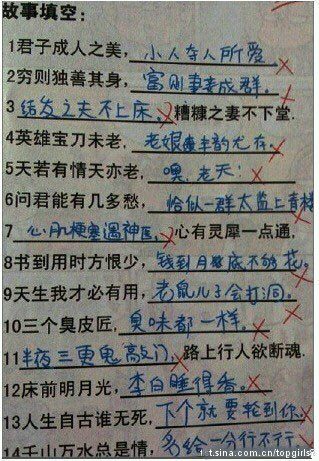 故事填空：
1君子成人之美，小人夺人所爱。
2穷则独善其身，富则妻妾成群。
3 结发之夫不上床，糟糠之妻不下堂.
4英雄宝刀未老，老娘风韵尤存。
5天若有情天亦老，噢，老天！
6问君能有几多愁，恰似一群太监上青楼
7 心肌梗塞遇神医，心有灵犀一点通，
8书到用时方恨少，钱到月底不够花。
9天生我才必有用，老鼠儿子会打洞。
10三个臭皮匠，臭味都一样。
11半夜三更鬼敲门，路上行人欲断魂.
12床前明月光，李白睡得香。
13人生自古谁无死，下个就要轮到你。
14千山万水总是情，多给一分行不行。
t.sina.com.cn/topgirls